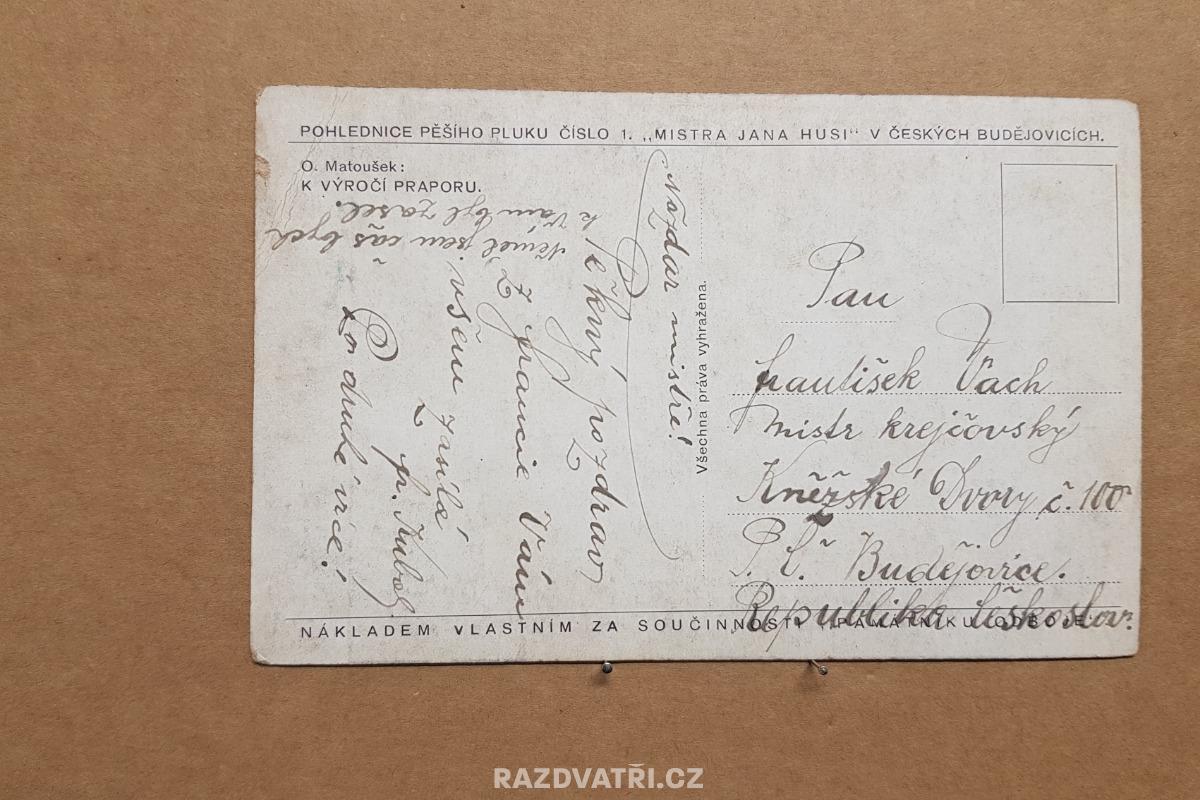 POHLEDNICE PĚŠÍHO PLUKU ČÍSLO 1. „MISTRA JANA HUSI“ V ČESKÝCH BUDĚJOVICÍCH.
O. Matoušek:
K VÝROČÍ PRAPORU.
Nazdar mistře!
Pěkný pozdrav
z francie Vám
všem zasílá
fr. Kubal
Po druhé více!
Neměl jsem čas bych
k Vám byl zašel.
Všechna práva vyhražena.
Pan
František Vach
mistr krejčovský
Kněžské Dvory č. 100
P. Č. Budějovice.
Republika Českoslov.
NÁKLADEM VLASTNÍM ZA SOUČINNOSTI „PAMÁTNÍKU ODBOJE“
RAZDVATŘI.CZ